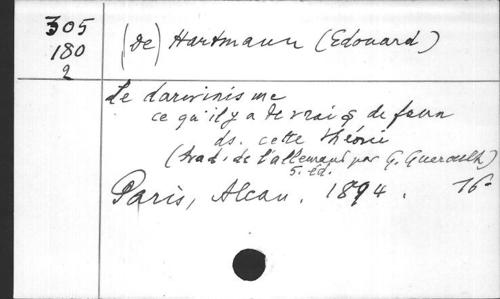 305
180
2
(De) Hartmann (Edouard)
Le darwinisme
ce qu'il y a de vrai & de faux
ds. cette théorie
(trad. de l'allemand par G. Gueroult)
5. éd.
Paris, Alcan. 1894. 16°